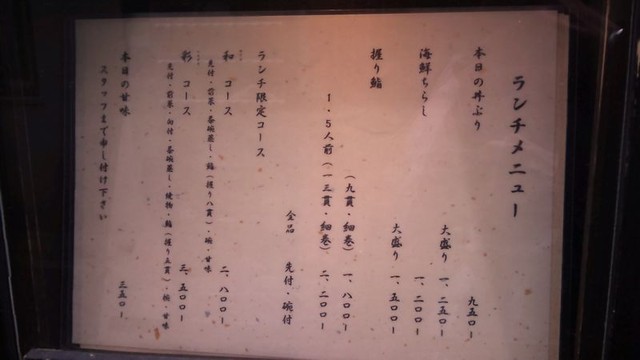 ランチメニュー
本日の丼ぶり 九五〇ー
大盛り 一、二五〇ー
海鮮ちらし 一、二〇〇ー
大盛り 一、五〇〇ー
握り鮨 (九貫・細巻) 一、八〇〇ー
1．5人前(一三貫・細巻) 二、二〇〇ー
全品 先付・碗付
ランチ限定コース
和 コース 二、八〇〇ー
先付・前菜・茶碗蒸し・鮨(握り八貫)・椀・甘味
彩 コース 三、五〇〇ー
先付・前菜・向付・茶碗蒸し・焼物・鮨(握り五貫)・椀・甘味
本日の甘味 三五〇ー
スタッフまで申し付け下さい